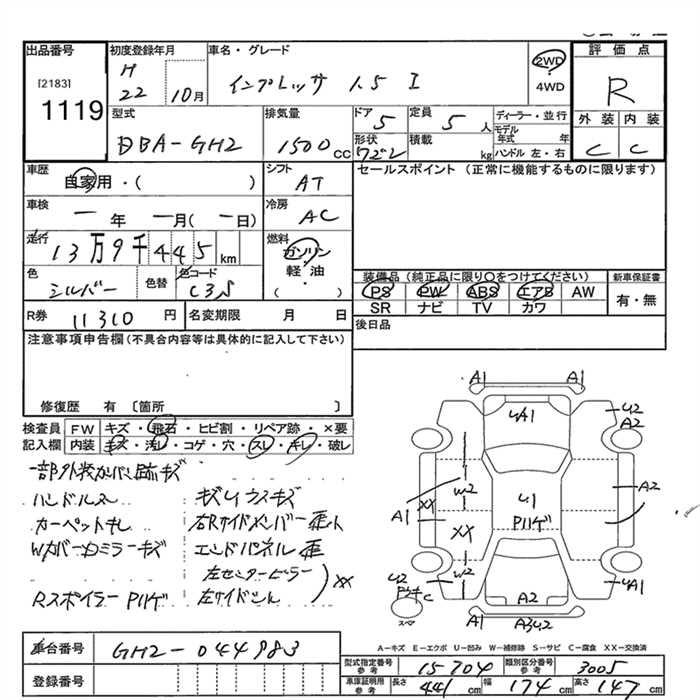 出品番号
[2183]
1119
初度登録年月
H
22 10月
車名・グレード
インプレッサ 1.5 I
2WD
4WD
評価点
R
外装 内装
C C
型式
DBA-GH2
排気量
1500 CC
ドア
5
形状
ワゴン
定員
5 人
積載
kg
ディーラー・並行
モデル年式 年
ハンドル 左・右
車歴
自家用・( )
シフト
AT
セールスポイント (正常に機能するものに限ります)
車検
一 年 一月(一日)
冷房
AC
走行
13万9千445 km
燃料
ガソリン
軽・油
( )
色
シルバー
色替
色コード
装備品(純正品に限り○をつけてください)
PS PW ABS エアB AW
SR ナビ TV カワ
新車保証書
有・無
R券
11310 円
名変期限 月 日
後日品
注意事項申告欄(不具合内容等は具体的に記入して下さい)
修復歴 有 〔箇所 〕
検査員記入欄
FW キズ・飛石・ヒビ割・リペア跡・×要
内装 キズ・汚レ・コゲ・穴・スレ・キレ・破レ
ハンドルスレ
カーペットキレ
WカバーカミラーキズRスポイラー Pハゲ
キズUウスキズ
エンドパネル
左センターピラー
左サイドシル
XX
A1 A1
UA1
U2
A2
W2
U1
Pハゲ
A2
A1
XX
XX
W2
U2
C
スペア
A2
UA1
A3U2
A−キズ E−エクボ U−凹み W−補修跡 S−サビ C−腐食 XX−交換済
車台番号
GH2-044983
登録番号
型式指定番号
参考
15704
類別区分番号
参考
3005
車庫証明用
参考
長さ
441 cm
幅
174 cm
高さ
147 cm